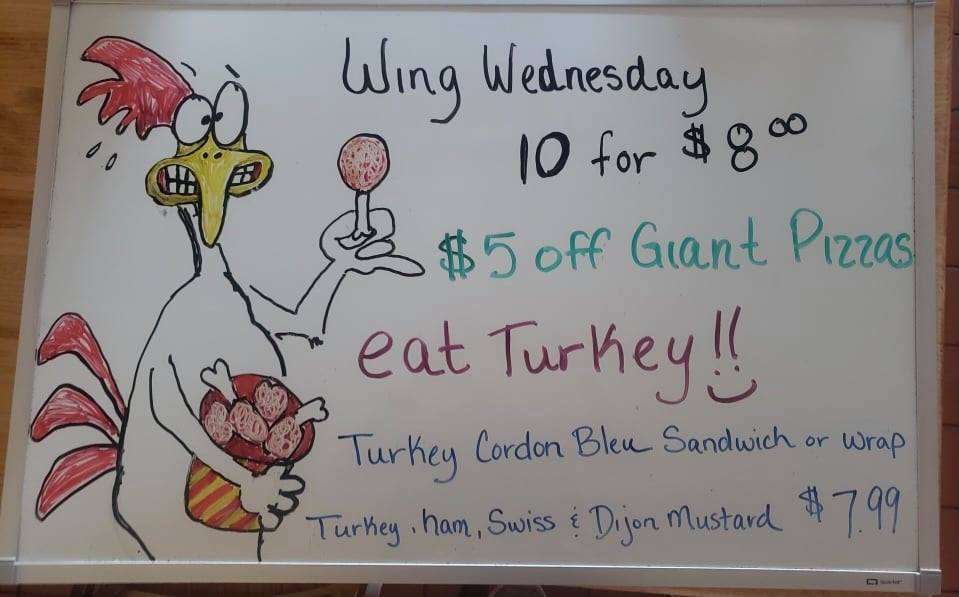 Wing Wednesday
10 for $8.00
$5 off Giant Pizzas
eat Turkey!!
Turkey Cordon Bleu Sandwich or wrap
Turkey, ham, Swiss & Dijon Mustard $7.99
Quartet